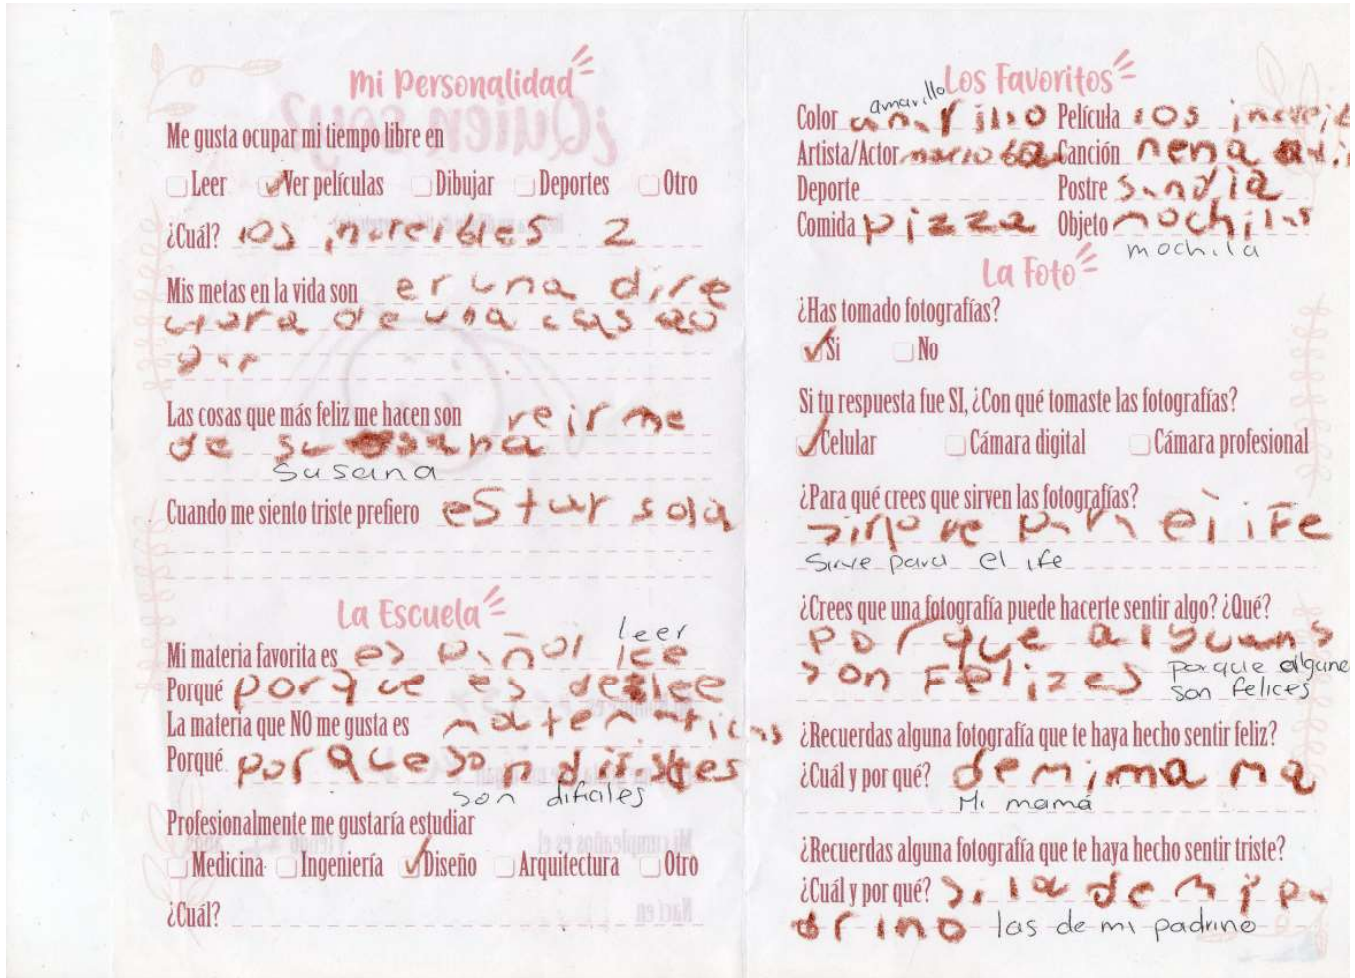 Mi Personalidad
Me gusta ocupar mi tiempo libre en
Leer Ver películas Dibujar Deportes Otro
¿Cuál? los increibles 2
Mis metas en la vida son er una dire
ctora de una cas ao
Las cosas que más feliz me hacen son reirme
de susana
Susana
Cuando me siento triste prefiero estar sola
La Escuela
leer
Mi materia favorita es español lee
Porqué porque es de lee
La materia que NO me gusta es matematicas
Porqué porque son
son dificiles
Profesionalmente me gustaría estudiar
Medicina Ingeniería Diseño Arquitectura Otro
¿Cuál?
Los Favoritos
amarillo
Color amarillo Película los increib
Artista/Actor mario Canción nena
Deporte Postre sandia
Comida pizza Objeto mochila
mochila
La Foto
¿Has tomado fotografías?
Si No
Si tu respuesta fue SI, ¿Con qué tomaste las fotografías?
Celular Cámara digital Cámara profesional
¿Para qué crees que sirven las fotografías?
sirve para el iFe
Sirve para el ife
¿Crees que una fotografía puede hacerte sentir algo? ¿Qué?
porque alguans
son Felizes porque algunas
son felices
¿Recuerdas alguna fotografía que te haya hecho sentir feliz?
¿Cuál y por qué? de mi mama
Mi mamá
¿Recuerdas alguna fotografía que te haya hecho sentir triste?
¿Cuál y por qué? si la de mi pa
drino las de mi padrino
¿Quien soy?
Mi cumpleaños es el
Nací en